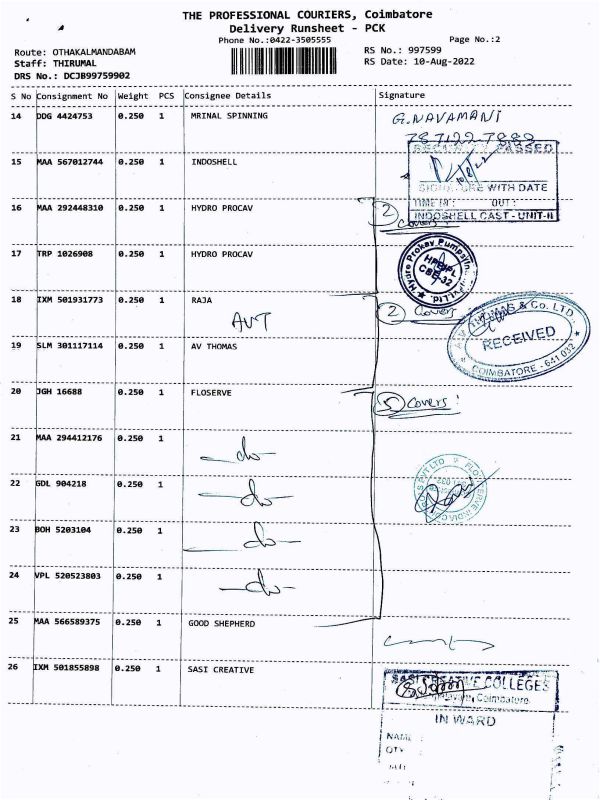 THE PROFESSIONAL COURIERS, Coimbatore
Delivery Runsheet - PCK
Phone No.:0422-3505555
Page No.:2
Route: OTHAKALMANDABAM
RS No.: 997599
Staff: THIRUMAL
RS Date: 10-Aug-2022
DRS No.: DCJB99759902
S No Consignment No Weight PCS Consignee Details Signature
14 DDG 4424753 0.250 1 MRINAL SPINNING G.NAVAMANI
15 MAA 567012744 0.250 1 INDOSHELL
PASSED
WITH DATE
TIME IN: OUT:
INDOSHELL CAST - UNIT-II
16 MAA 292448310 0.250 1 HYDRO PROCAV 2 Covers
17 TRP 1026908 0.250 1 HYDRO PROCAV
CBE-32
18 IXM 501931773 0.250 1 RAJA 2 Covers
AVT
& Co. LTD.
RECEIVED
COIMBATORE - 641 032
19 SLM 301117114 0.250 1 AV THOMAS
20 JGH 16688 0.250 1 FLOSERVE 5 Covers!
21 MAA 294412176 0.250 1 -do-
22 GDL 904218 0.250 1 -do-
23 BOH 5203104 0.250 1 -do-
24 VPL 520523803 0.250 1 -do-
25 MAA 566589375 0.250 1 GOOD SHEPHERD
26 IXM 501855898 0.250 1 SASI CREATIVE
COLLEGES
Coimbatore
IN WARD
NAME :
QTY :